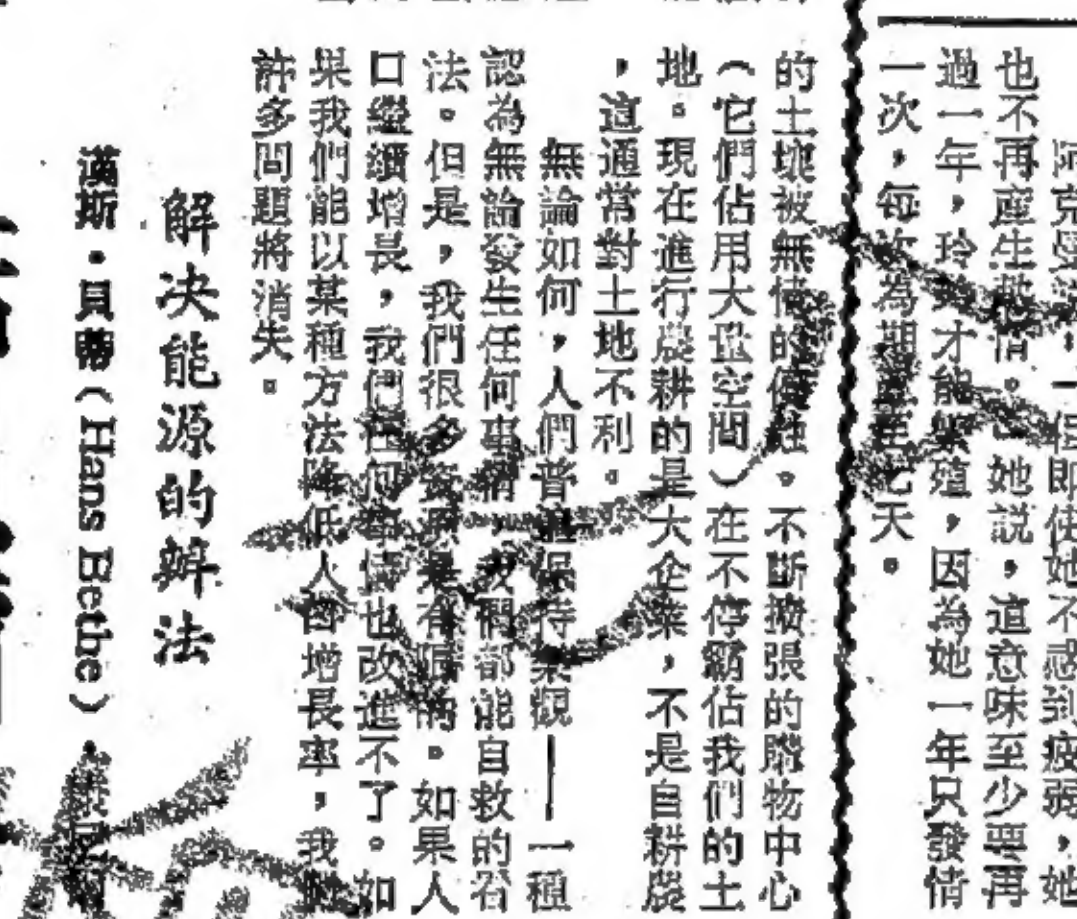 也不再產生熱情。她說,這意味至少要再
過一年,玲玲才能繁殖,因為她一年只發情
一次,每次為期 七天。
的土壤被無情的侵蝕。不斷擴張的購物中心
(它們佔用大量空間)在不停霸佔我們的土
地。現在進行農耕的是大企業,不是自耕農
,這通常對土地不利。
無論如何,人們普遍保持樂觀——一種
認為無論發生任何事情,我們都能自救的看
法。但是,我們很多資源是有限的。如果人
口繼續增長,我們任何事情也改進不了。如
果我們能以某種方法降低人口增長率,我
許多問題將消失。
解決能源的辦法
漢斯·貝蒂(Hans Bethe)